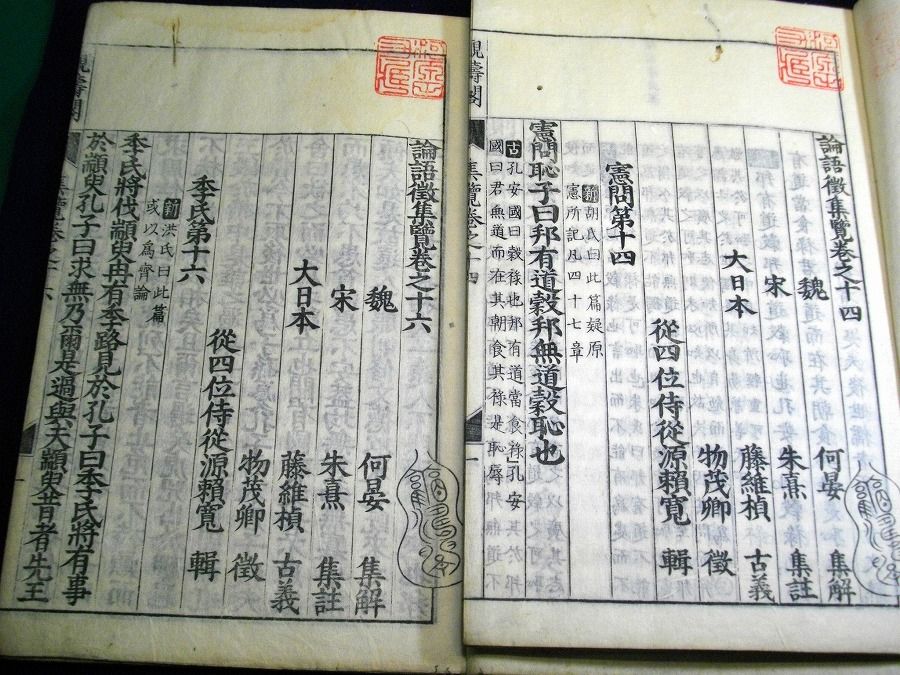 論語徵集覽卷之十四
魏 何晏 集解
宋 朱熹 集註
大日本 藤維楨 古義
物茂卿 徵
從四位侍從源賴寬 輯
憲問第十四
新 胡氏曰此篇疑原
憲所記凡四十七章
憲問恥子曰邦有道穀邦無道穀恥也
古 孔安國曰穀祿也邦有道當食祿孔安
國曰君無道而在其朝食其祿是恥辱
觀濤閣
集覽卷之十四
論語徵集覽卷之十六
魏 何晏 集解
宋 朱熹 集註
大日本 藤維楨 古義
物茂卿 徵
從四位侍從源賴寬 輯
季氏第十六
新 洪氏曰此篇
或以為齊論
季氏將伐顓臾冉有季路見於孔子曰季氏將有事
於顓臾孔子曰求無乃爾是過與夫顓臾昔者先王
觀濤閣
集覽卷之十六